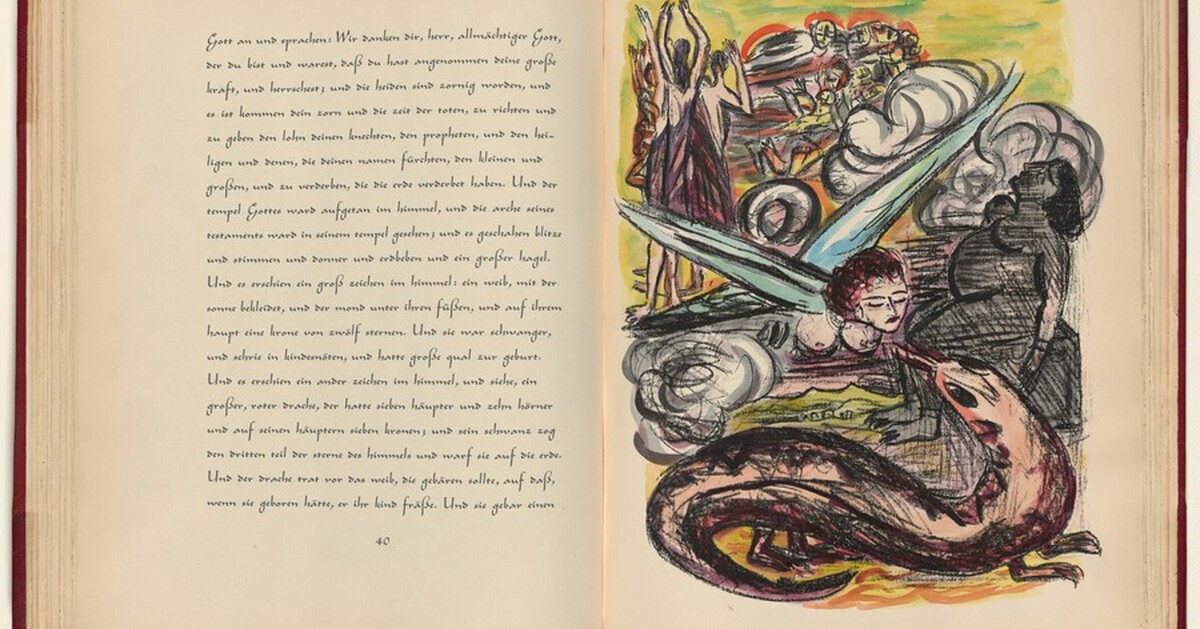 Gott an und sprachen: Wir danken dir, herr, allmächtiger Gott,
der du bist und warest, daß du hast angenommen deine große
kraft, und herrschest; und die heiden sind zornig worden, und
es ist kommen dein zorn und die zeit der toten, zu richten und
zu geben den lohn deinen knechten, den propheten, und den hei-
ligen und denen, die deinen namen fürchten, den kleinen und
großen, und zu verderben, die die erde verderbet haben. Und der
tempel Gottes ward aufgetan im himmel, und die arche seines
testaments ward in seinem tempel gesehen; und es geschahen blitze
und stimmen und donner und erdbeben und ein großer hagel.
Und es erschien ein groß zeichen im himmel: ein weib, mit der
sonne bekleidet, und der mond unter ihren füßen, und auf ihrem
haupt eine krone von zwölf sternen. Und sie war schwanger,
und schrie in kindesnöten, und hatte große qual zur geburt.
Und es erschien ein ander zeichen im himmel, und siehe, ein
großer, roter drache, der hatte sieben häupter und zehn hörner
und auf seinen häuptern sieben kronen; und sein schwanz zog
den dritten teil der sterne des himmels und warf sie auf die erde.
Und der drache trat vor das weib, die gebären sollte, auf daß,
wenn sie geboren hätte, er ihr kind fräße. Und sie gebar einen
40